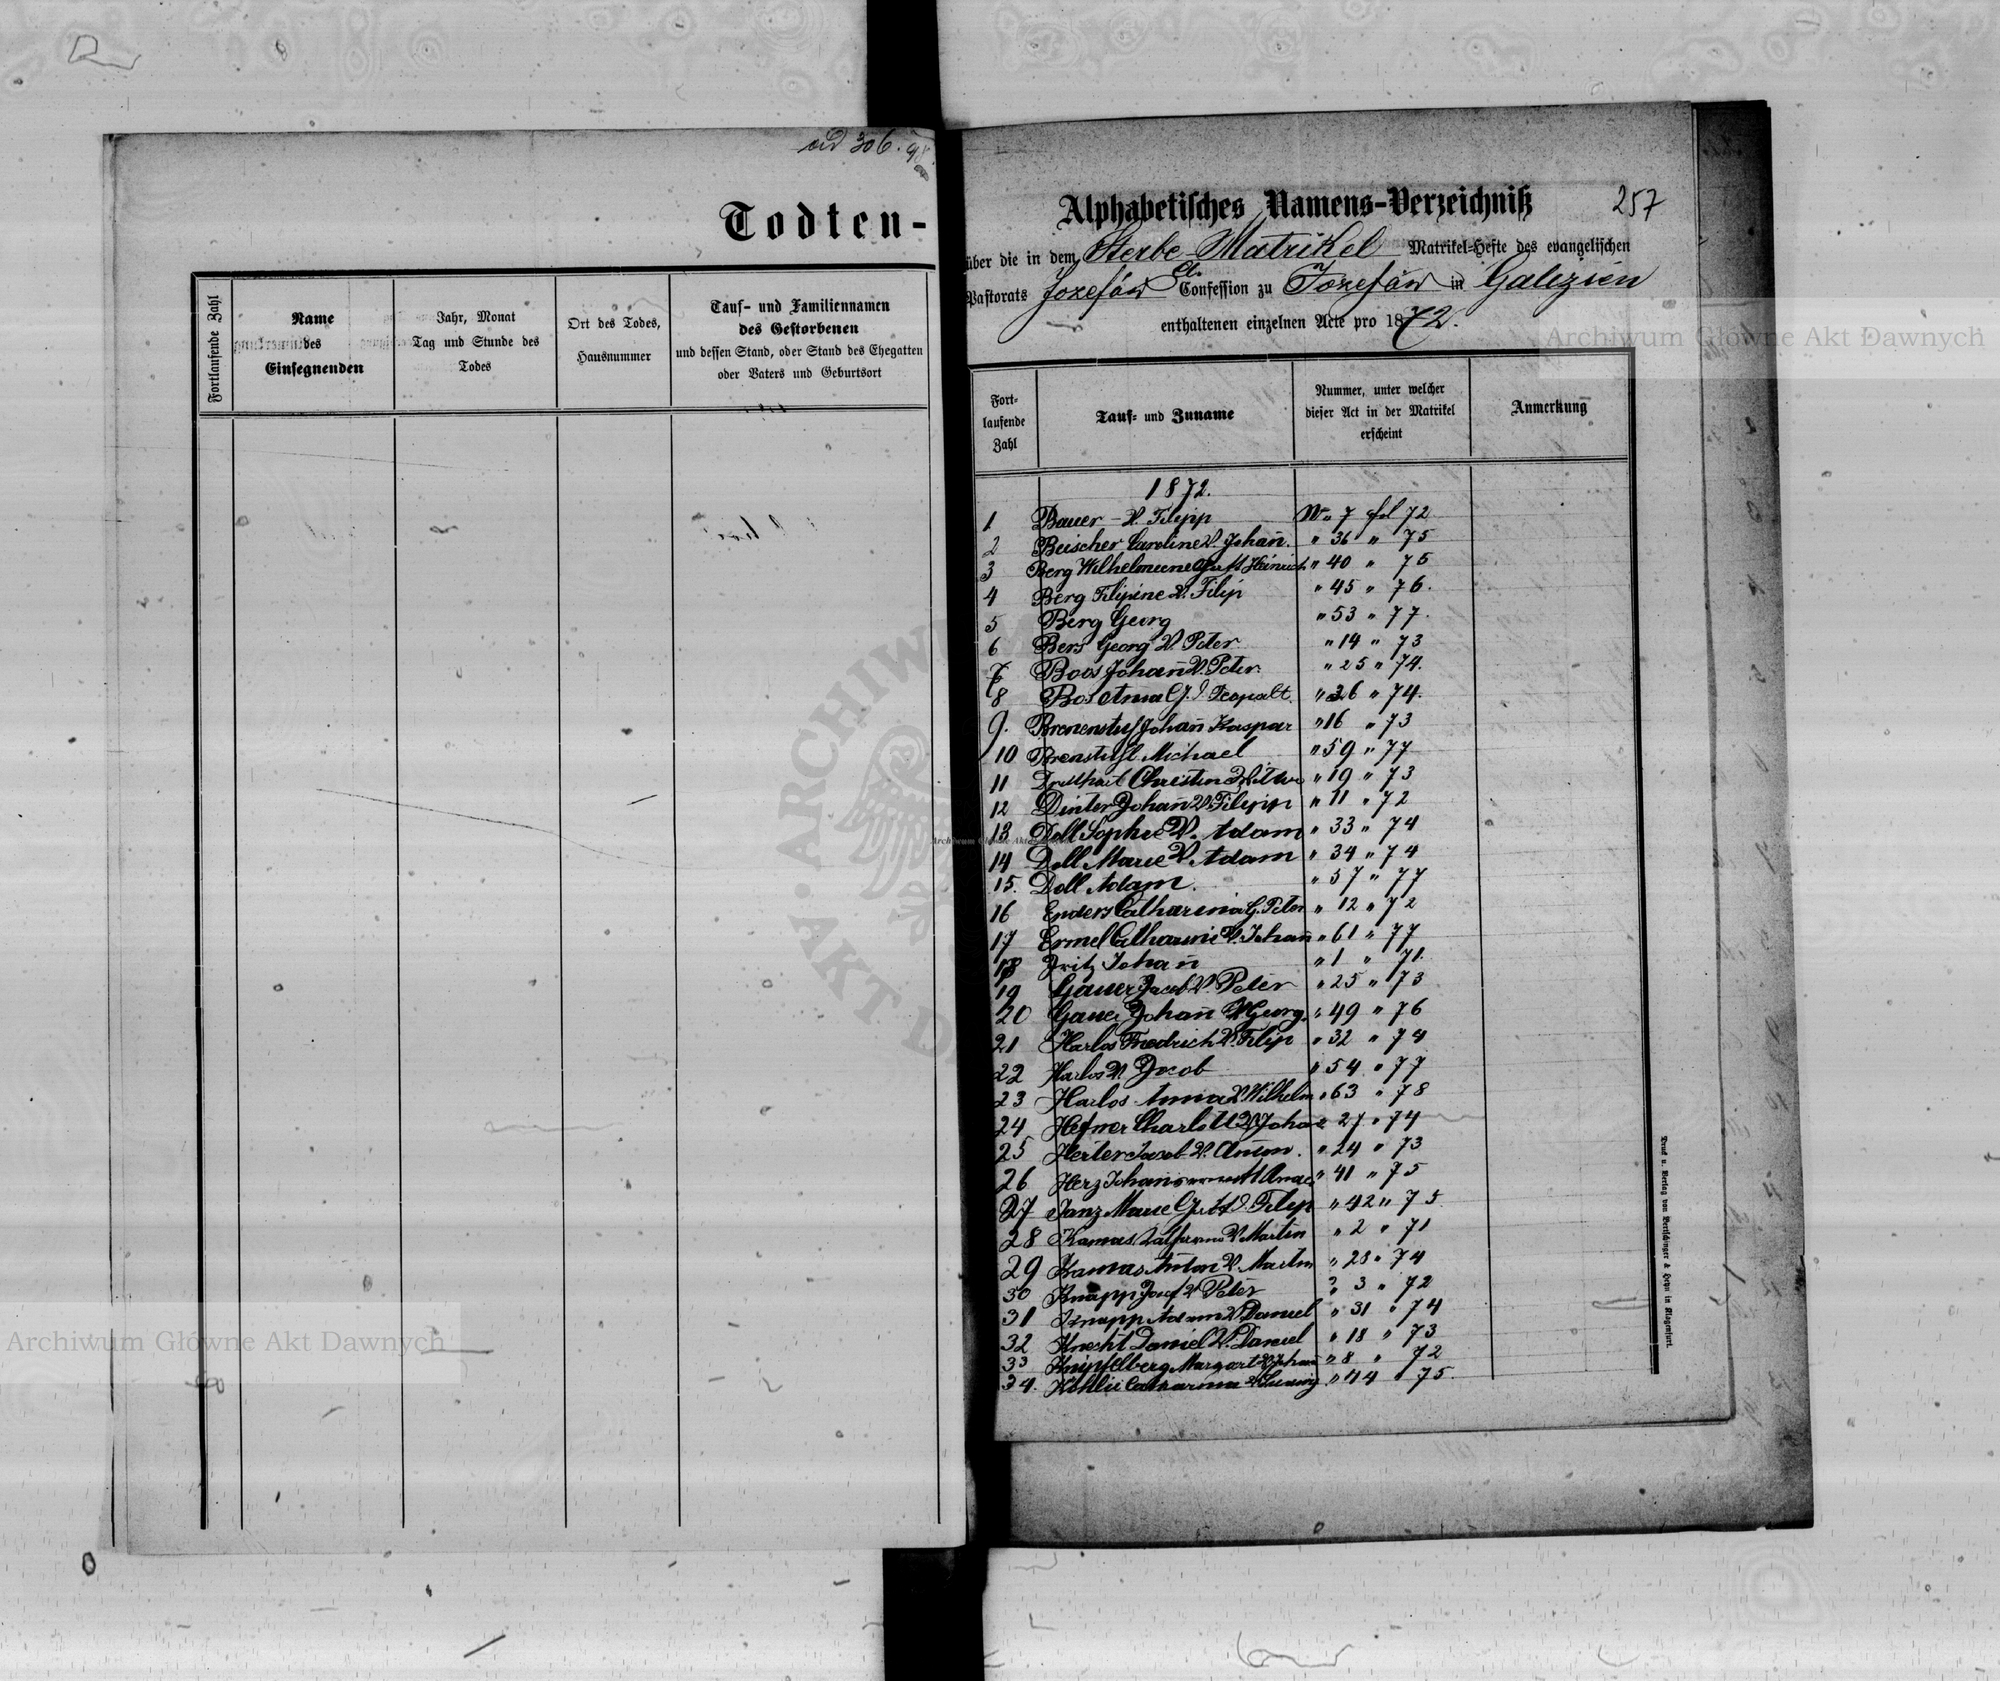 ad 306. 98.
Todten-
Fortlaufende Zahl
Name
des
Einsegnenden
Jahr, Monat
Tag und Stunde des
Todes
Ort des Todes,
Hausnummer
Tauf- und Familiennamen
des Gestorbenen
und dessen Stand, oder Stand des Ehegatten
oder Vaters und Geburtsort
Alphabetisches Namens-Verzeichniß
257
über die in dem Sterbe-Matrikel Matrikel-Hefte des evangelischen
Pastorats Jozefów Confession zu Jozefów in Galizien
enthaltenen einzelnen Acte pro 1872.
Fort-
laufende
Zahl
Tauf- und Zuname
Nummer, unter welcher
dieser Act in der Matrikel
erscheint
Anmerkung
1872.
1 Bauer - V. Filipp No 7 fol 72
2 Beischer Caroline V. Johan̄. " 36 " 75
3 Berg Wilhelmine Heinrich " 40 " 75
4 Berg Filipine V. Filip " 45 " 76.
5 Berg Georg " 53 " 77.
6 Bers Georg V. Peter " 14 " 73
7 Boos Johan̄ V. Peter. " 25 " 74.
8 Bos Anna G. " 26 " 74.
9. Johan̄ Kaspar " 16 " 73
10 Michael " 59 " 77
11 Christin Witwe " 19 " 73
12 Dinter Johan̄ V. Filipp " 11 " 72
13 Doll Sophie V. Adam " 33 " 74
14 Doll Marie V. Adam " 34 " 74
15. Doll Adam. " 57 " 77
16 Enders Catharina G. Peter " 12 " 72
17 Ermel Catharine V. Johan̄ " 61 " 77
18 Fritz Johan̄ " 1 " 71.
19 Gauer Jacob V. Peter " 25 " 73
20 Gauer Johan̄ V Georg. " 49 " 76
21 Harlos Friedrich V. Filip " 32 " 74
22 Harlos V. Jacob " 54 " 77
23 Harlos Anna V Wilhelm " 63 " 78
24 Hefner Charlott V Johan " 27 " 74
25 Heiter Jacob V. Anton. " 24 " 73
26 Herz " 41 " 75
27 Janz Marie Filip " 42 " 75
28 Kamas V Martin " 2 " 71
29 Kamas Anton V. Martin " 28 " 74
30 Knapp Josef V Peter " 3 " 72
31 Knapp Adam V. Daniel " 31 " 74
32 Knecht Daniel V. Daniel " 18 " 73
33 Knipfelberg Margart V Johan " 8 " 72
34. Köhli Catharina V Ludwig " 44 " 75.
Druck u. Verlag von Bertschinger & Heyn in Klagenfurt.
Archiwum Główne Akt Dawnych
Archiwum Główne Akt Dawnych